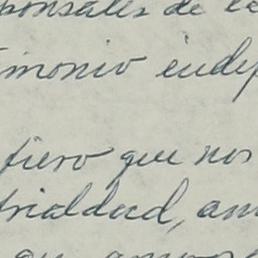 ponsales de la
imonio indep
fiero que nos
trialdad, am